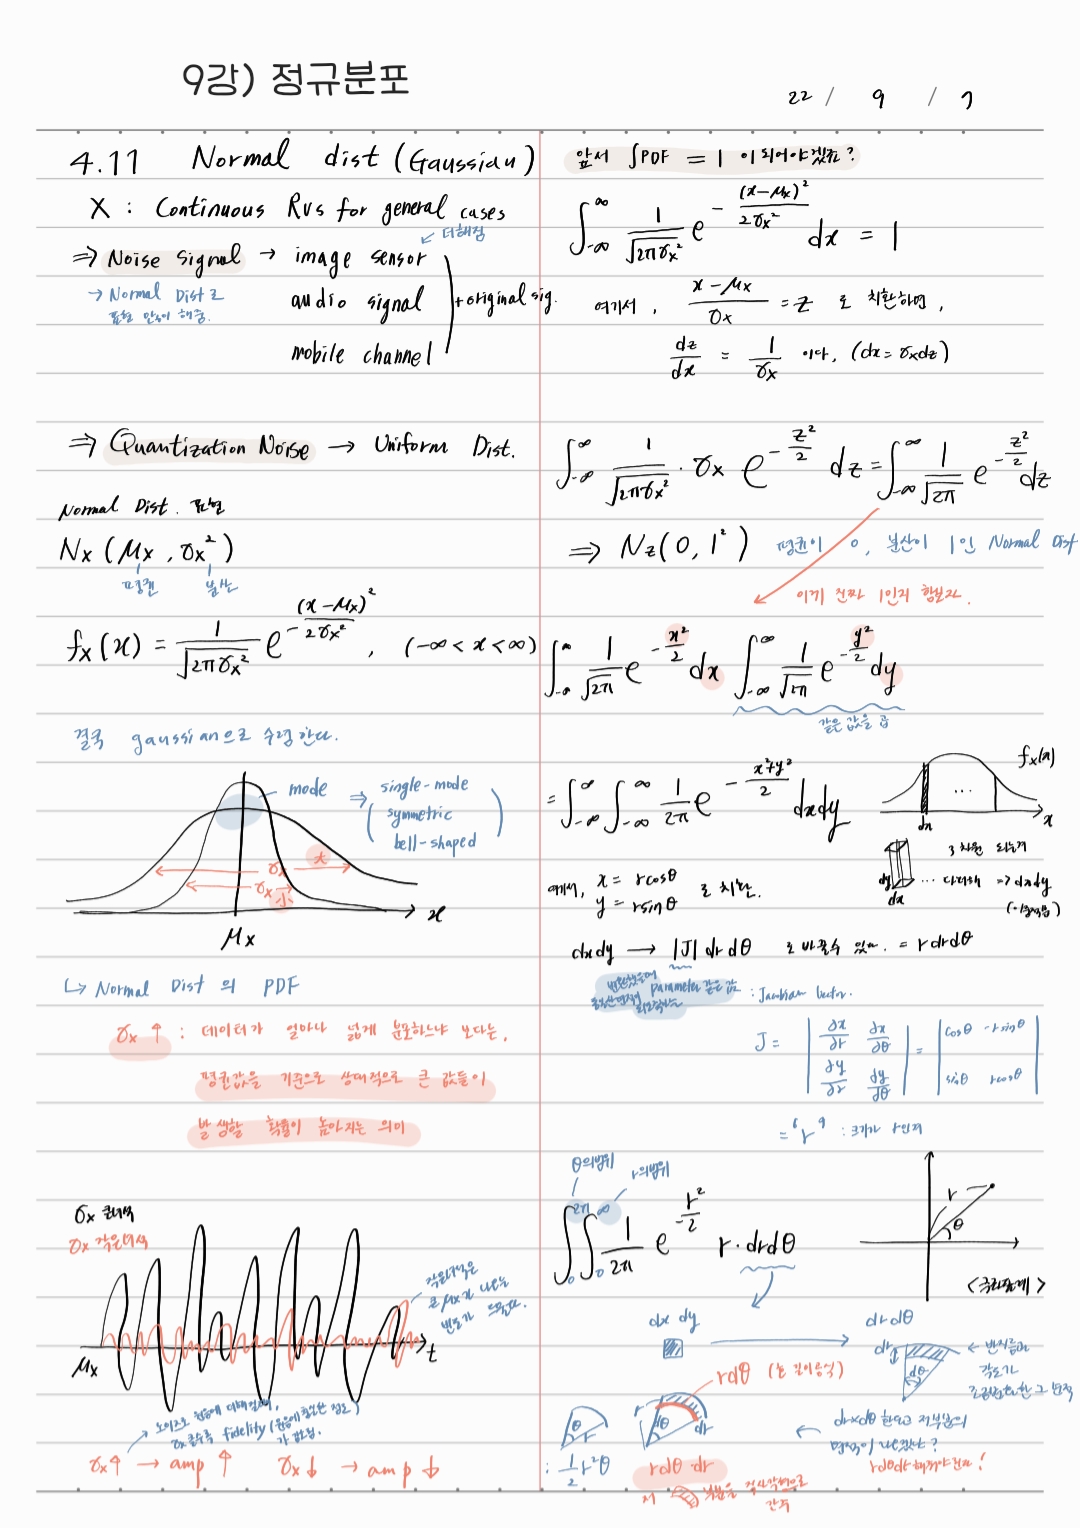 9강) 정규분포
22 / 9 / 7
4.11 Normal dist (Gaussian)
X : Continuous RVs for general cases
⇒ Noise signal → image sensor
↙ 더해짐
audio signal
+ original sig.
mobile channel
→ Normal Dist로
표현 많이 해줌.
⇒ Quantization Noise → Uniform Dist.
Normal Dist. 표현
Nx (μx , σx²)
평균 분산
fx(x) = 1/√(2πσx²) e^-(x-μx)²/2σx² , (-∞ < x < ∞)
결국 gaussian으로 수렴한다.
mode ⇒ single-mode
symmetric
bell-shaped
σx 大
σx 小
x
μx
↳ Normal Dist 의 PDF
σx ↑ : 데이터가 얼마나 넓게 분포하느냐 보다는,
평균값을 기준으로 상대적으로 큰 값들이
발생할 확률이 높아지는 의미
σx 큰녀석
σx 작은녀석
작은녀석은
큰 μx가 나오는
빈도가 드물다.
μx
t
노이즈로 원음에 더해질때,
σx 클수록 fidelity (원음에 충실한 정도)
가 감소됨.
σx↑ → amp ↑ σx↓ → amp ↓
앞서 ∫PDF = 1 이 되어야겠죠?
∫-∞^∞ 1/√(2πσx²) e^-(x-μx)²/2σx² dx = 1
여기서, (x-μx)/σx = z 로 치환하면,
dz/dx = 1/σx 이다. (dx = σxdz)
∫-∞^∞ 1/√(2πσx²) · σx e^-z²/2 dz = ∫-∞^∞ 1/√2π e^-z²/2 dz
⇒ Nz(0, 1²) 평균이 0, 분산이 1인 Normal Dist
이게 진짜 1인지 함보자.
∫-∞^∞ 1/√2π e^-x²/2 dx ∫-∞^∞ 1/√2π e^-y²/2 dy
같은 값을 곱
= ∫-∞^∞ ∫-∞^∞ 1/2π e^-(x²+y²)/2 dxdy
fx(x)
...
dx
x
3차원 되는거
dy
dx
... 다더해 => dxdy
(이중적분)
여기서, x = rcosθ
y = rsinθ
로 치환.
dxdy → |J| drdθ 로 바꿀수 있다. = rdrdθ
parameter 같은 값 : Jacobian Vector.
J = | ∂x/∂r ∂x/∂θ | = | cosθ -rsinθ |
| ∂y/∂r ∂y/∂θ | | sinθ rcosθ |
= "r" : 크기가 r인지
θ의범위 r의범위
∫0^2π ∫0^∞ 1/2π e^-r²/2 r·drdθ
r
θ
<극좌표계>
dx dy
drdθ
dr
dθ
← 반지름과
각도가
조금변한 그 면적
rdθ (는 길이음식)
θ
r
dθ
dr
← drxdθ 한다고 저부분의
면적이 나오겠는가?
rdθdr 해줘야한다!
: 1/2 r²θ
rdθ dr
저 부분을 직사각형으로
간주